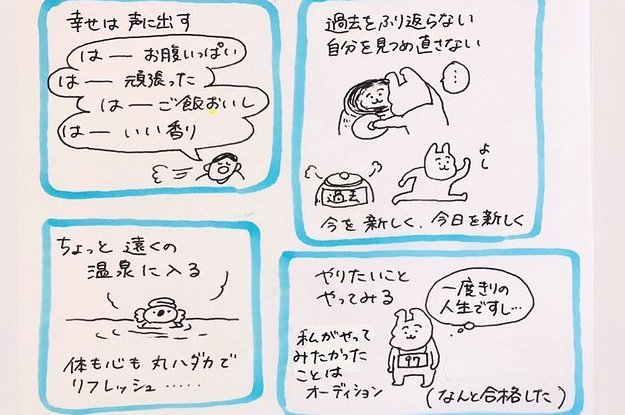 幸せは 声に出す
はー お腹いっぱい
はー 頑張った
はー ご飯おいし
はー いい香り
過去をふり返らない
自分を見つめ直さない
…
よし
過去
今を新しく、今日を新しく
ちょっと遠くの
温泉に入る
体も心も丸ハダカで
リフレッシュ……
やりたいこと
やってみる
一度きりの
人生ですし…
私がやって
みたかった
ことは
オーディション
97
(なんと合格した)